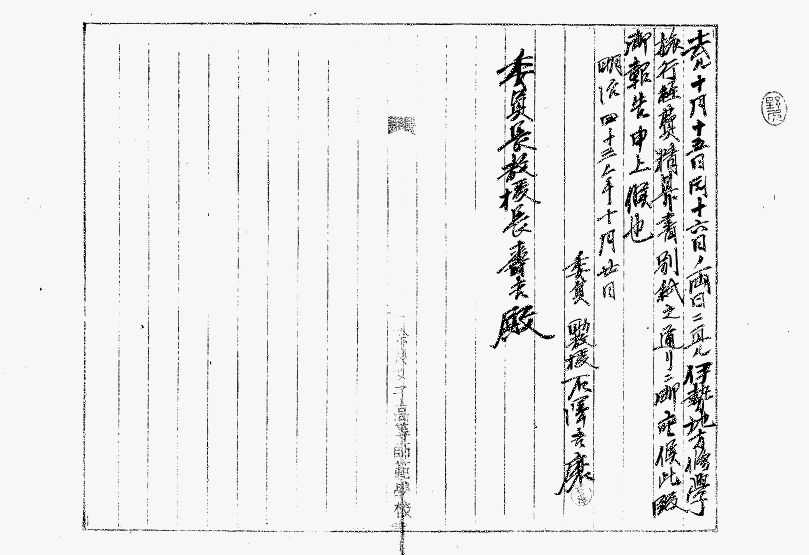 去ル十月十五日同十六日ノ両日ニ亘ル伊勢地方修学
旅行経費精算書別紙之通リニ御座候此段
御報告申上候也
明治四十三年十月廿日
委員 教授 石澤吾磨
委員長教授長壽吉殿
奈良女子高等師範學校